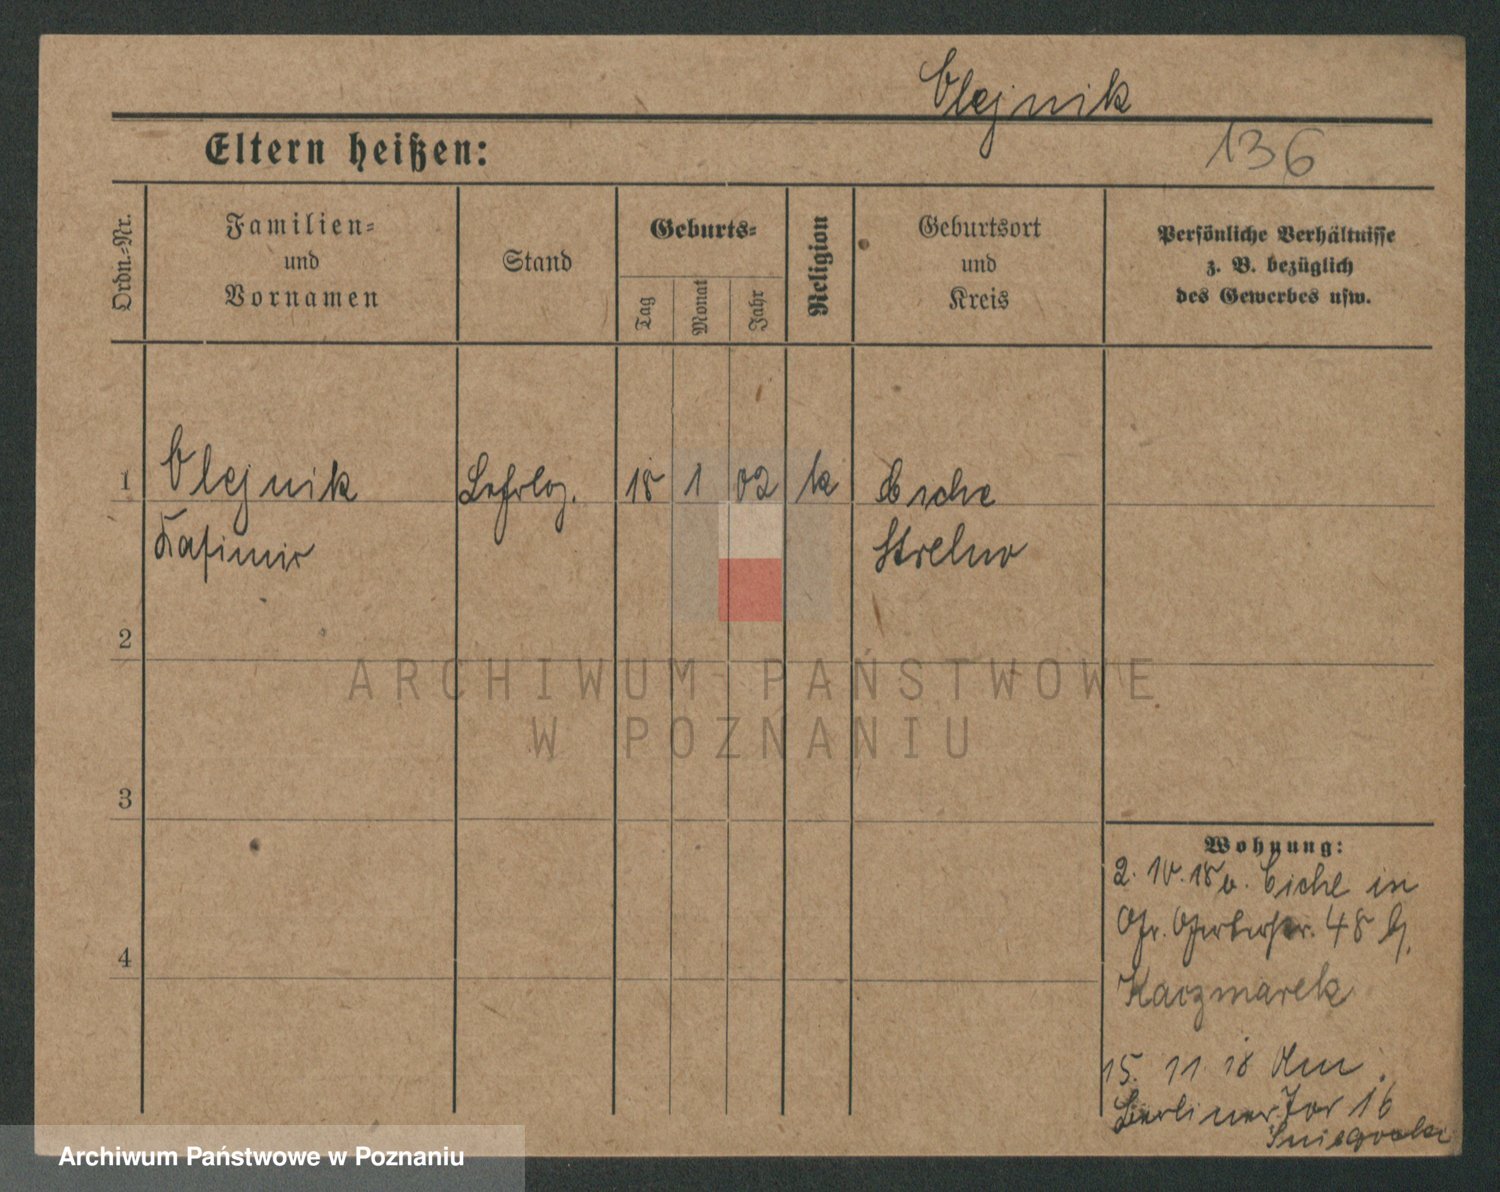 Olejnik
Eltern heißen:
136
Ordn.-Nr.
Familien-
und
Vornamen
Stand
Geburts-
Tag
Monat
Jahr
Religion
Geburtsort
und
Kreis
Persönliche Verhältnisse
z. B. bezüglich
des Gewerbes usw.
1
Olejnik
Kasimir
18
1
02
k
Strelno
2
3
4
Wohnung:
2. 10. 18 v. Eiche in
48 b
Kaczmarek
15. 11 18
Berliner Tor 16
ARCHIWUM PAŃSTWOWE
W POZNANIU
Archiwum Państwowe w Poznaniu